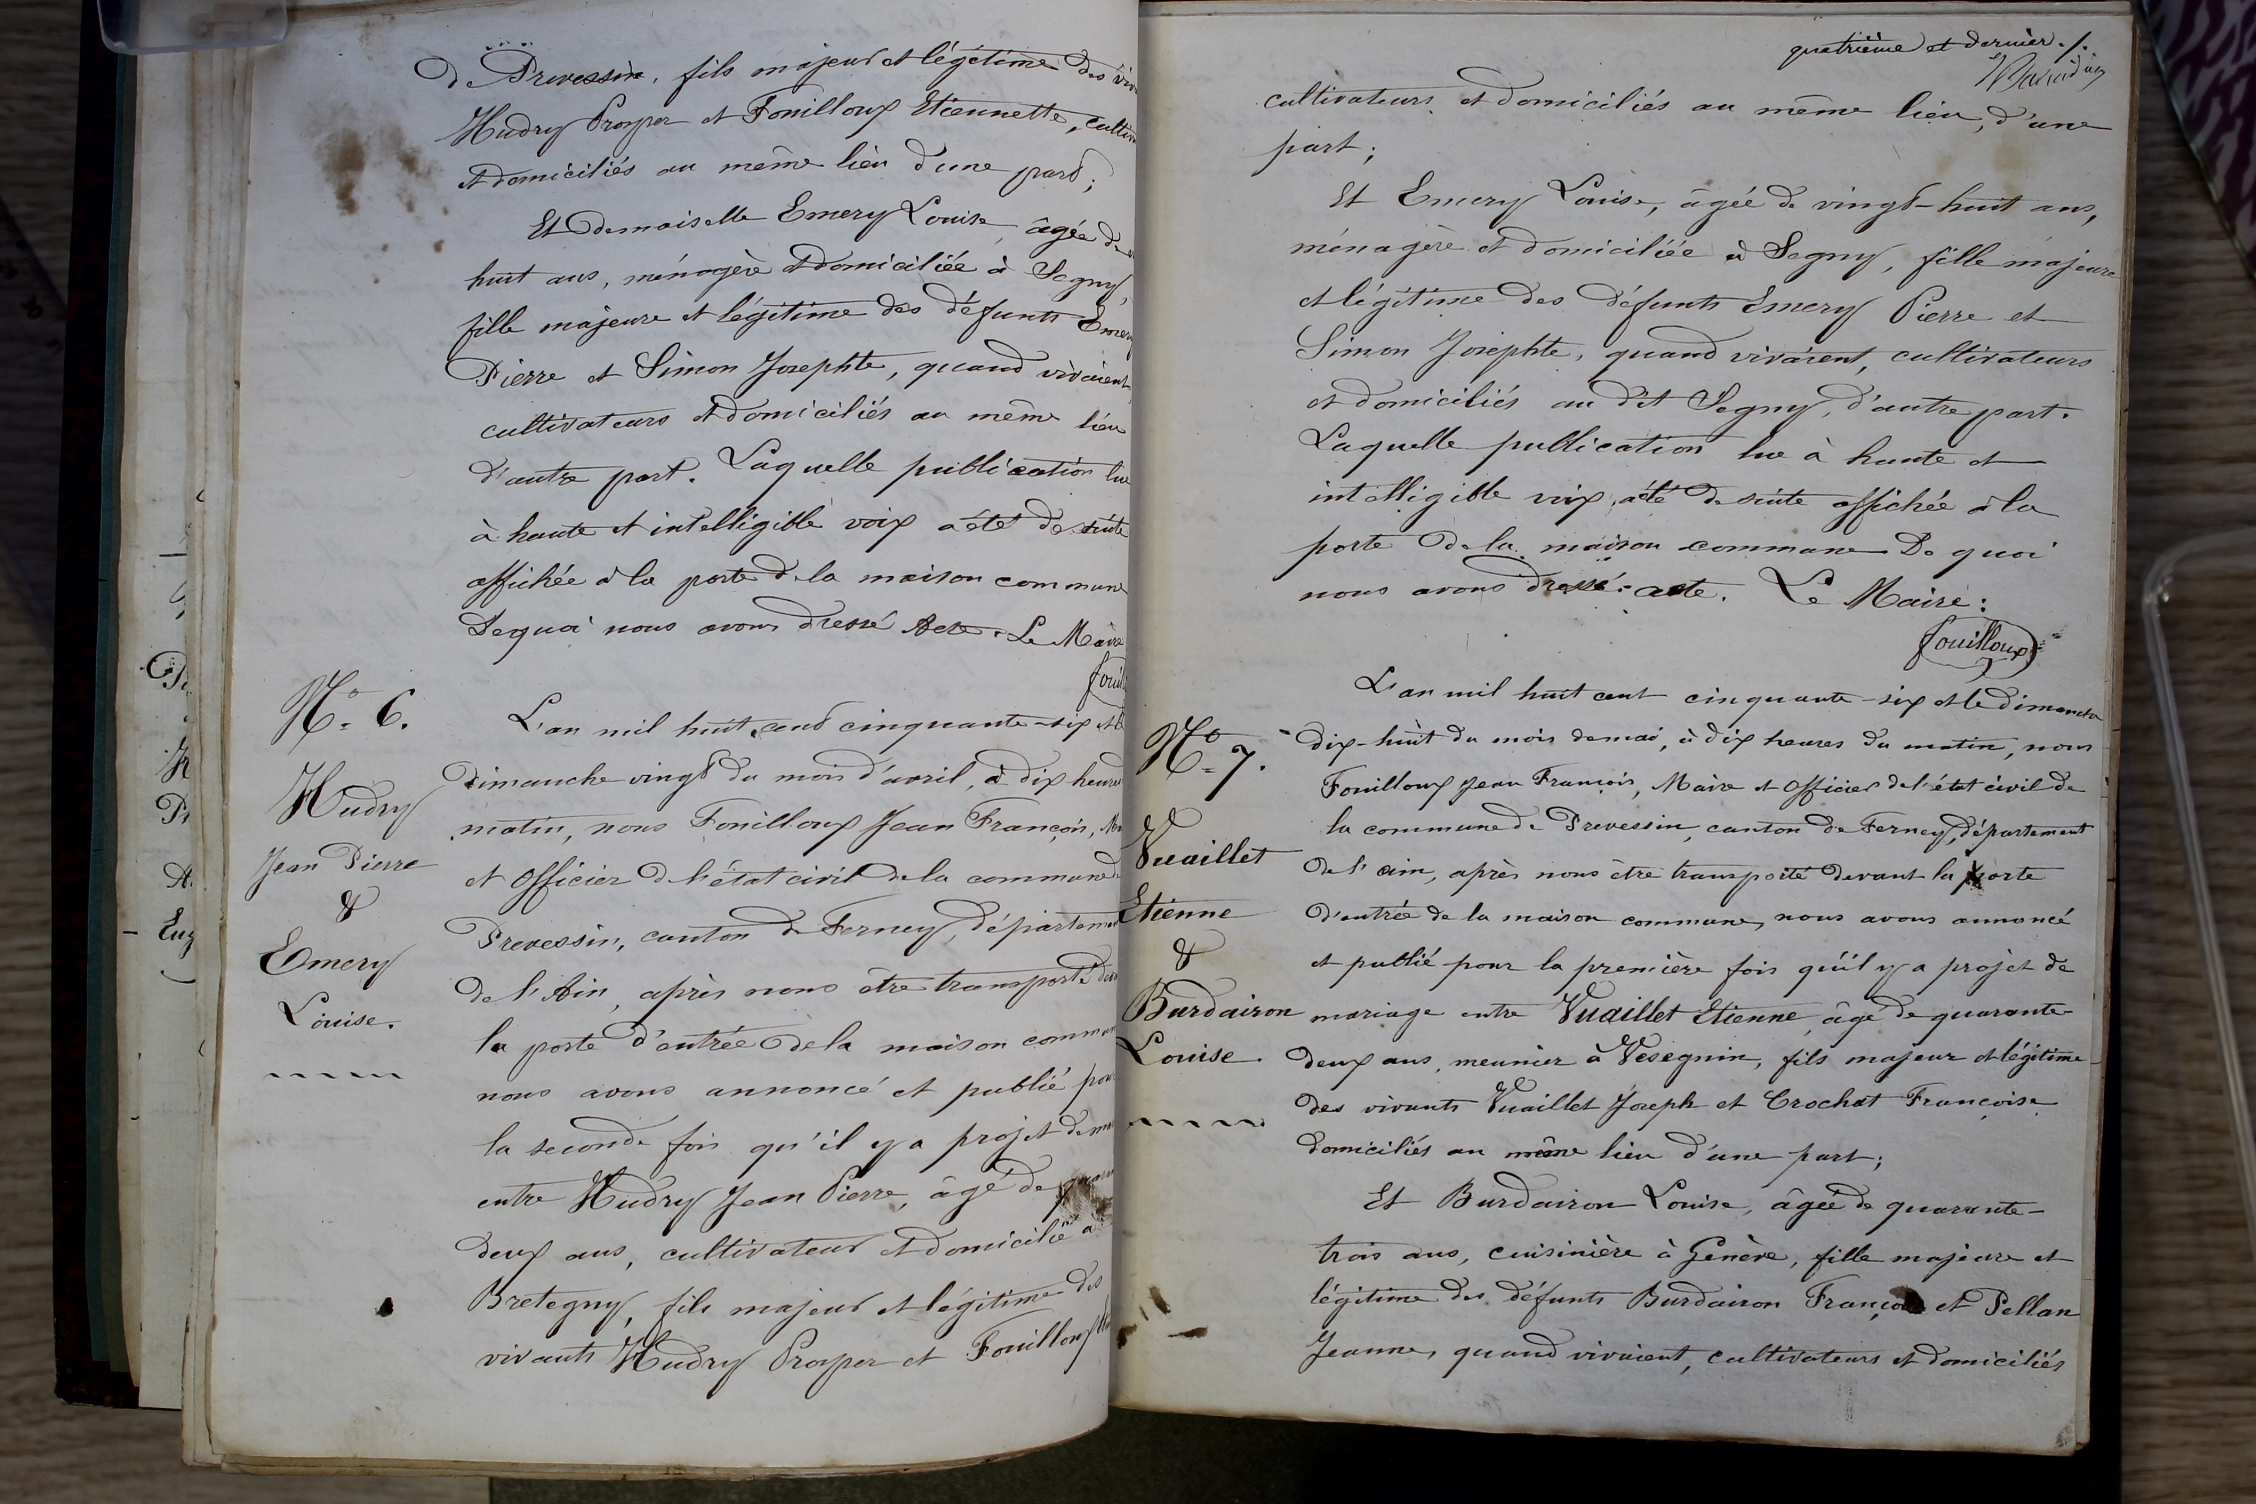 de Prevessin, fils majeur et légitime des viv
Hudry Prosper et Fouilloux Etiennette, cultiv
et domiciliés au même lieu d'une part;
Et Demoiselle Emery Louise âgée de
huit ans, ménagère et domiciliée à Segny,
fille majeure et légitime des défunts Emery
Pierre et Simon Josephte, quand vivaient,
cultivateurs et domiciliés au même lieu
d'autre part. Laquelle publication lue
à haute et intelligible voix a été de suite
affichée à la porte de la maison commune
De quoi nous avons dressé Acte. Le Maire
Fouil
N° 6.
Hudry
Jean Pierre
&
Emery
Louise.
L'an mil huit cent cinquante-six et le
dimanche vingt du mois d'avril, à dix heures
matin, nous Fouilloux Jean François, M
et Officier de l'état civil de la commune de
Prevessin, canton de Ferney, département
de l'Ain, après nous être transporté dev
la porte d'entrée de la maison commun
nous avons annoncé et publié pour
la seconde fois qu'il y a projet de ma
entre Hudry Jean Pierre, âgé de quaran
deux ans, cultivateur et domicilié à
Bretegny, fils majeur et légitime des
vivants Hudry Prosper et Fouilloux
quatrième et dernier./.
cultivateurs et domiciliés au même lieu, d'une
part;
Et Emery Louise, âgée de vingt-huit ans,
ménagère et domiciliée à Segny, fille majeure
et légitime des défunts Emery Pierre et
Simon Josephte, quand vivaient, cultivateurs
et domiciliés au dit Segny, d'autre part.
Laquelle publication lue à haute et
intelligible voix, a été de suite affichée à la
porte de la maison commune De quoi
nous avons dressé acte. Le Maire:
Fouilloux
N° 7.
Vuaillet
Etienne
&
Burdairon
Louise.
L'an mil huit cent cinquante-six et le dimanche
dix-huit du mois de mai, à dix heures du matin, nous
Fouilloux Jean François, Maire et Officier de l'état civil de
la commune de Prevessin, canton de Ferney, département
de l'ain, après nous être transporté devant la porte
d'entrée de la maison commune, nous avons annoncé
et publié pour la première fois qu'il y a projet de
mariage entre Vuaillet Etienne, âgé de quarante-
deux ans, meunier à Vesegnin, fils majeur et légitime
des vivants Vuaillet Joseph et Crochat Françoise
domiciliés au même lieu d'une part;
Et Burdairon Louise, âgée de quarante-
trois ans, cuisinière à Genève, fille majeure et
légitime des défunts Burdairon François et Pellan
Jeanne, quand vivaient, cultivateurs et domiciliés